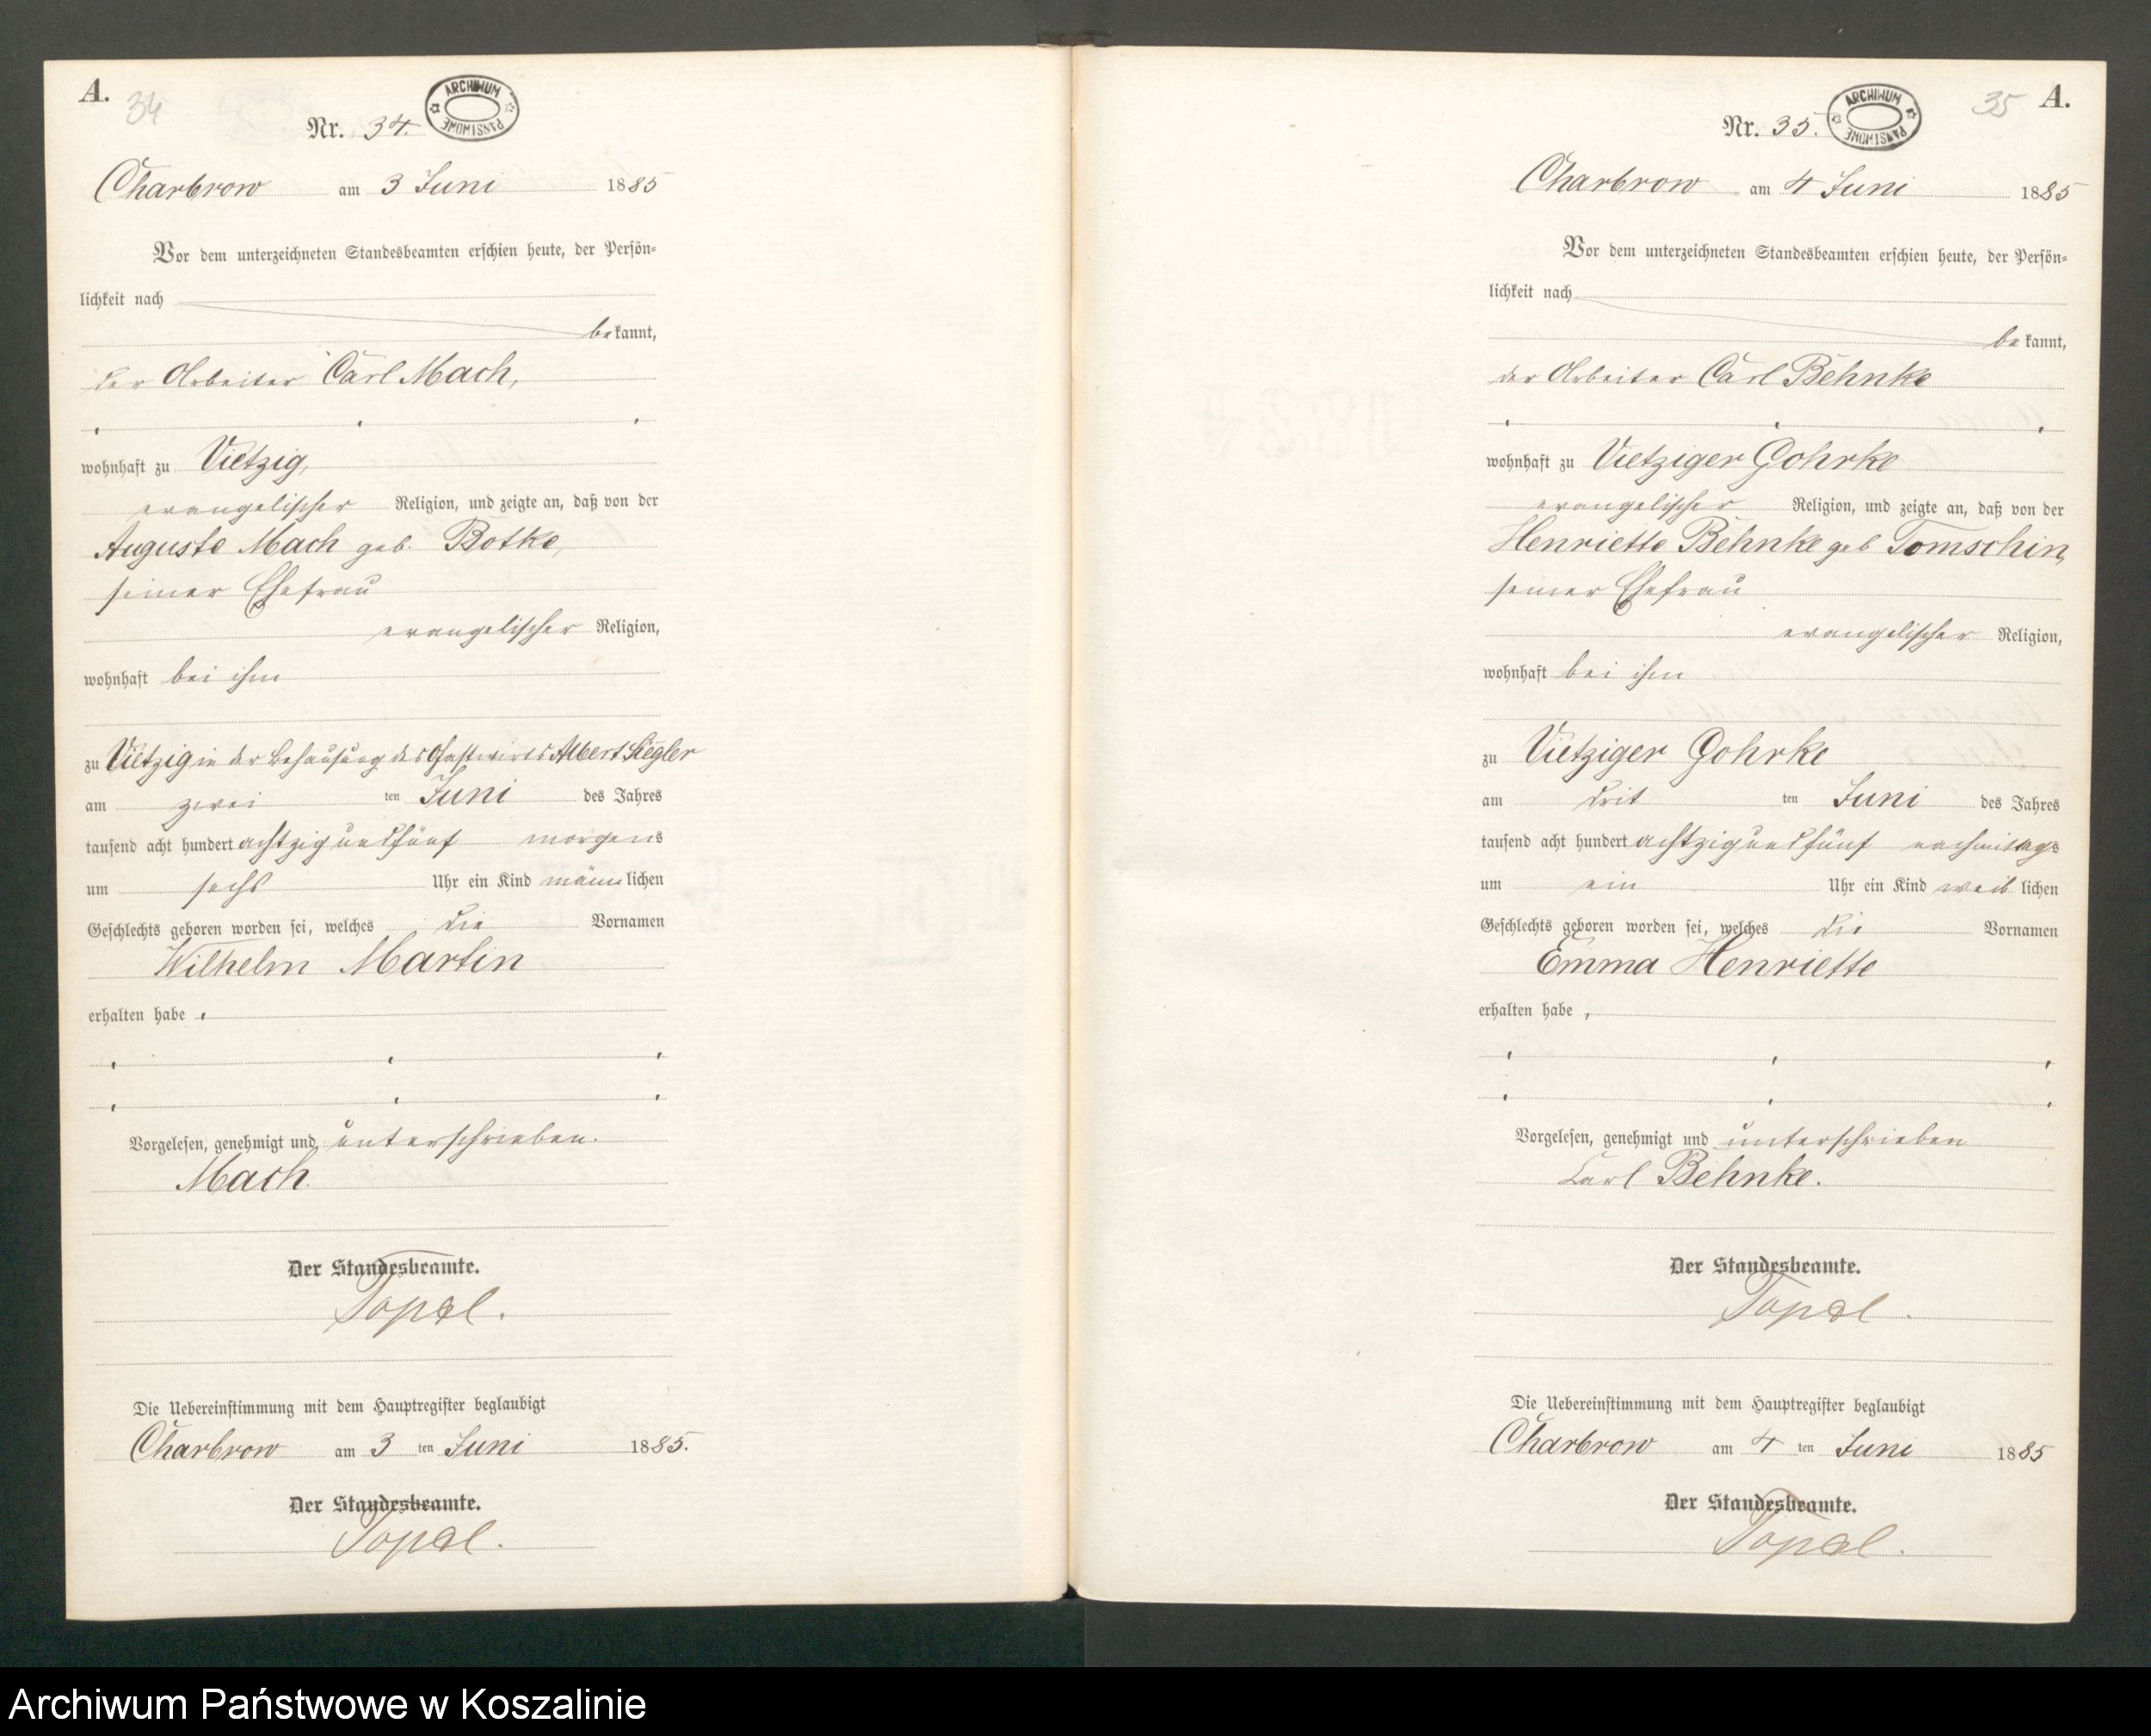 A.
34
Nr. 34.
ARCHIWUM PAŃSTWOWE
Charbrow am 3 Juni 1885
Vor dem unterzeichneten Standesbeamten erschien heute, der Persön-
lichkeit nach
bekannt,
der Arbeiter Carl Mach,
wohnhaft zu Vietzig,
evangelischer Religion, und zeigte an, daß von der
Auguste Mach geb. Botke,
seiner Ehefrau
evangelischer Religion,
wohnhaft bei ihm
zu Vietzig in der Behausung des Gastwirts Albert Siegler
am zwei ten Juni des Jahres
tausend acht hundert achtzig und fünf morgens
um sechs Uhr ein Kind männlichen
Geschlechts geboren worden sei, welches die Vornamen
Wilhelm Martin
erhalten habe
Vorgelesen, genehmigt und unterschrieben.
Mach.
Der Standesbeamte.
Topel.
Die Uebereinstimmung mit dem Hauptregister beglaubigt
Charbrow am 3 ten Juni 1885.
Der Standesbeamte.
Topel.
35 A.
Nr. 35.
ARCHIWUM PAŃSTWOWE
Charbrow am 4 Juni 1885
Vor dem unterzeichneten Standesbeamten erschien heute, der Persön-
lichkeit nach
bekannt,
der Arbeiter Carl Behnke
wohnhaft zu Vietziger Gohrke
evangelischer Religion, und zeigte an, daß von der
Henriette Behnke geb Tomschin,
seiner Ehefrau
evangelischer Religion,
wohnhaft bei ihm
zu Vietziger Gohrke
am drit ten Juni des Jahres
tausend acht hundert achtzig und fünf nachmittags
um ein Uhr ein Kind weiblichen
Geschlechts geboren worden sei, welches die Vornamen
Emma Henriette
erhalten habe
Vorgelesen, genehmigt und unterschrieben
Carl Behnke.
Der Standesbeamte.
Topel.
Die Uebereinstimmung mit dem Hauptregister beglaubigt
Charbrow am 4 ten Juni 1885
Der Standesbeamte.
Topel.
Archiwum Państwowe w Koszalinie